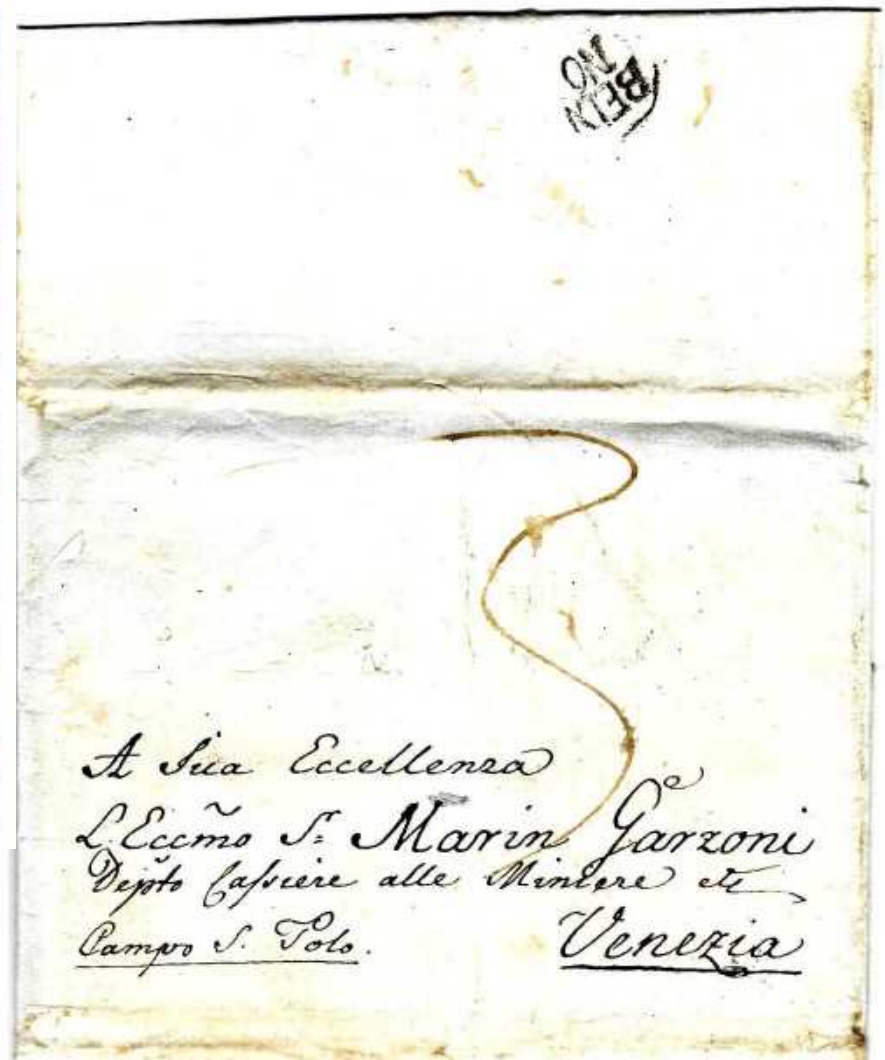 BELV
NO
3
A Sua Eccellenza
L'Eccm̃o Sr: Marin Garzoni
Dep̃to Cassiere alle Miniere etc
Campo S. Polo.
Venezia